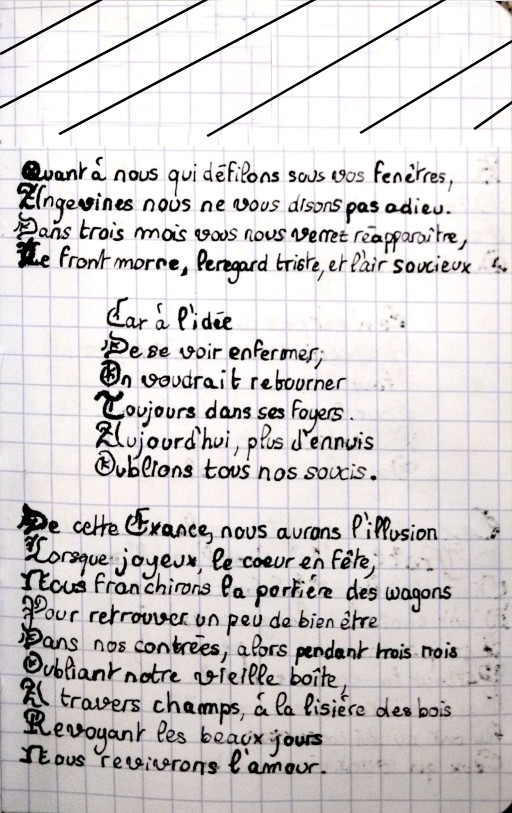 Quant à nous qui défilons sous vos fenêtres,
Angevines nous ne vous disons pas adieu.
Dans trois mois vous nous verrez réapparaître,
Le front morne, le regard triste, et l'air soucieux
Car à l'idée
De se voir enfermer;
On voudrait retourner
Toujours dans ses foyers.
Aujourd'hui, plus d'ennuis
Oublions tous nos soucis.
De cette France, nous aurons l'illusion
Lorsque joyeux, le coeur en fête,
Nous franchirons la portière des wagons
Pour retrouver un peu de bien être
Dans nos contrées, alors pendant trois mois
Oubliant notre vieille boîte,
A travers champs, à la lisière des bois
Revoyant les beaux jours
Nous revivrons l'amour.